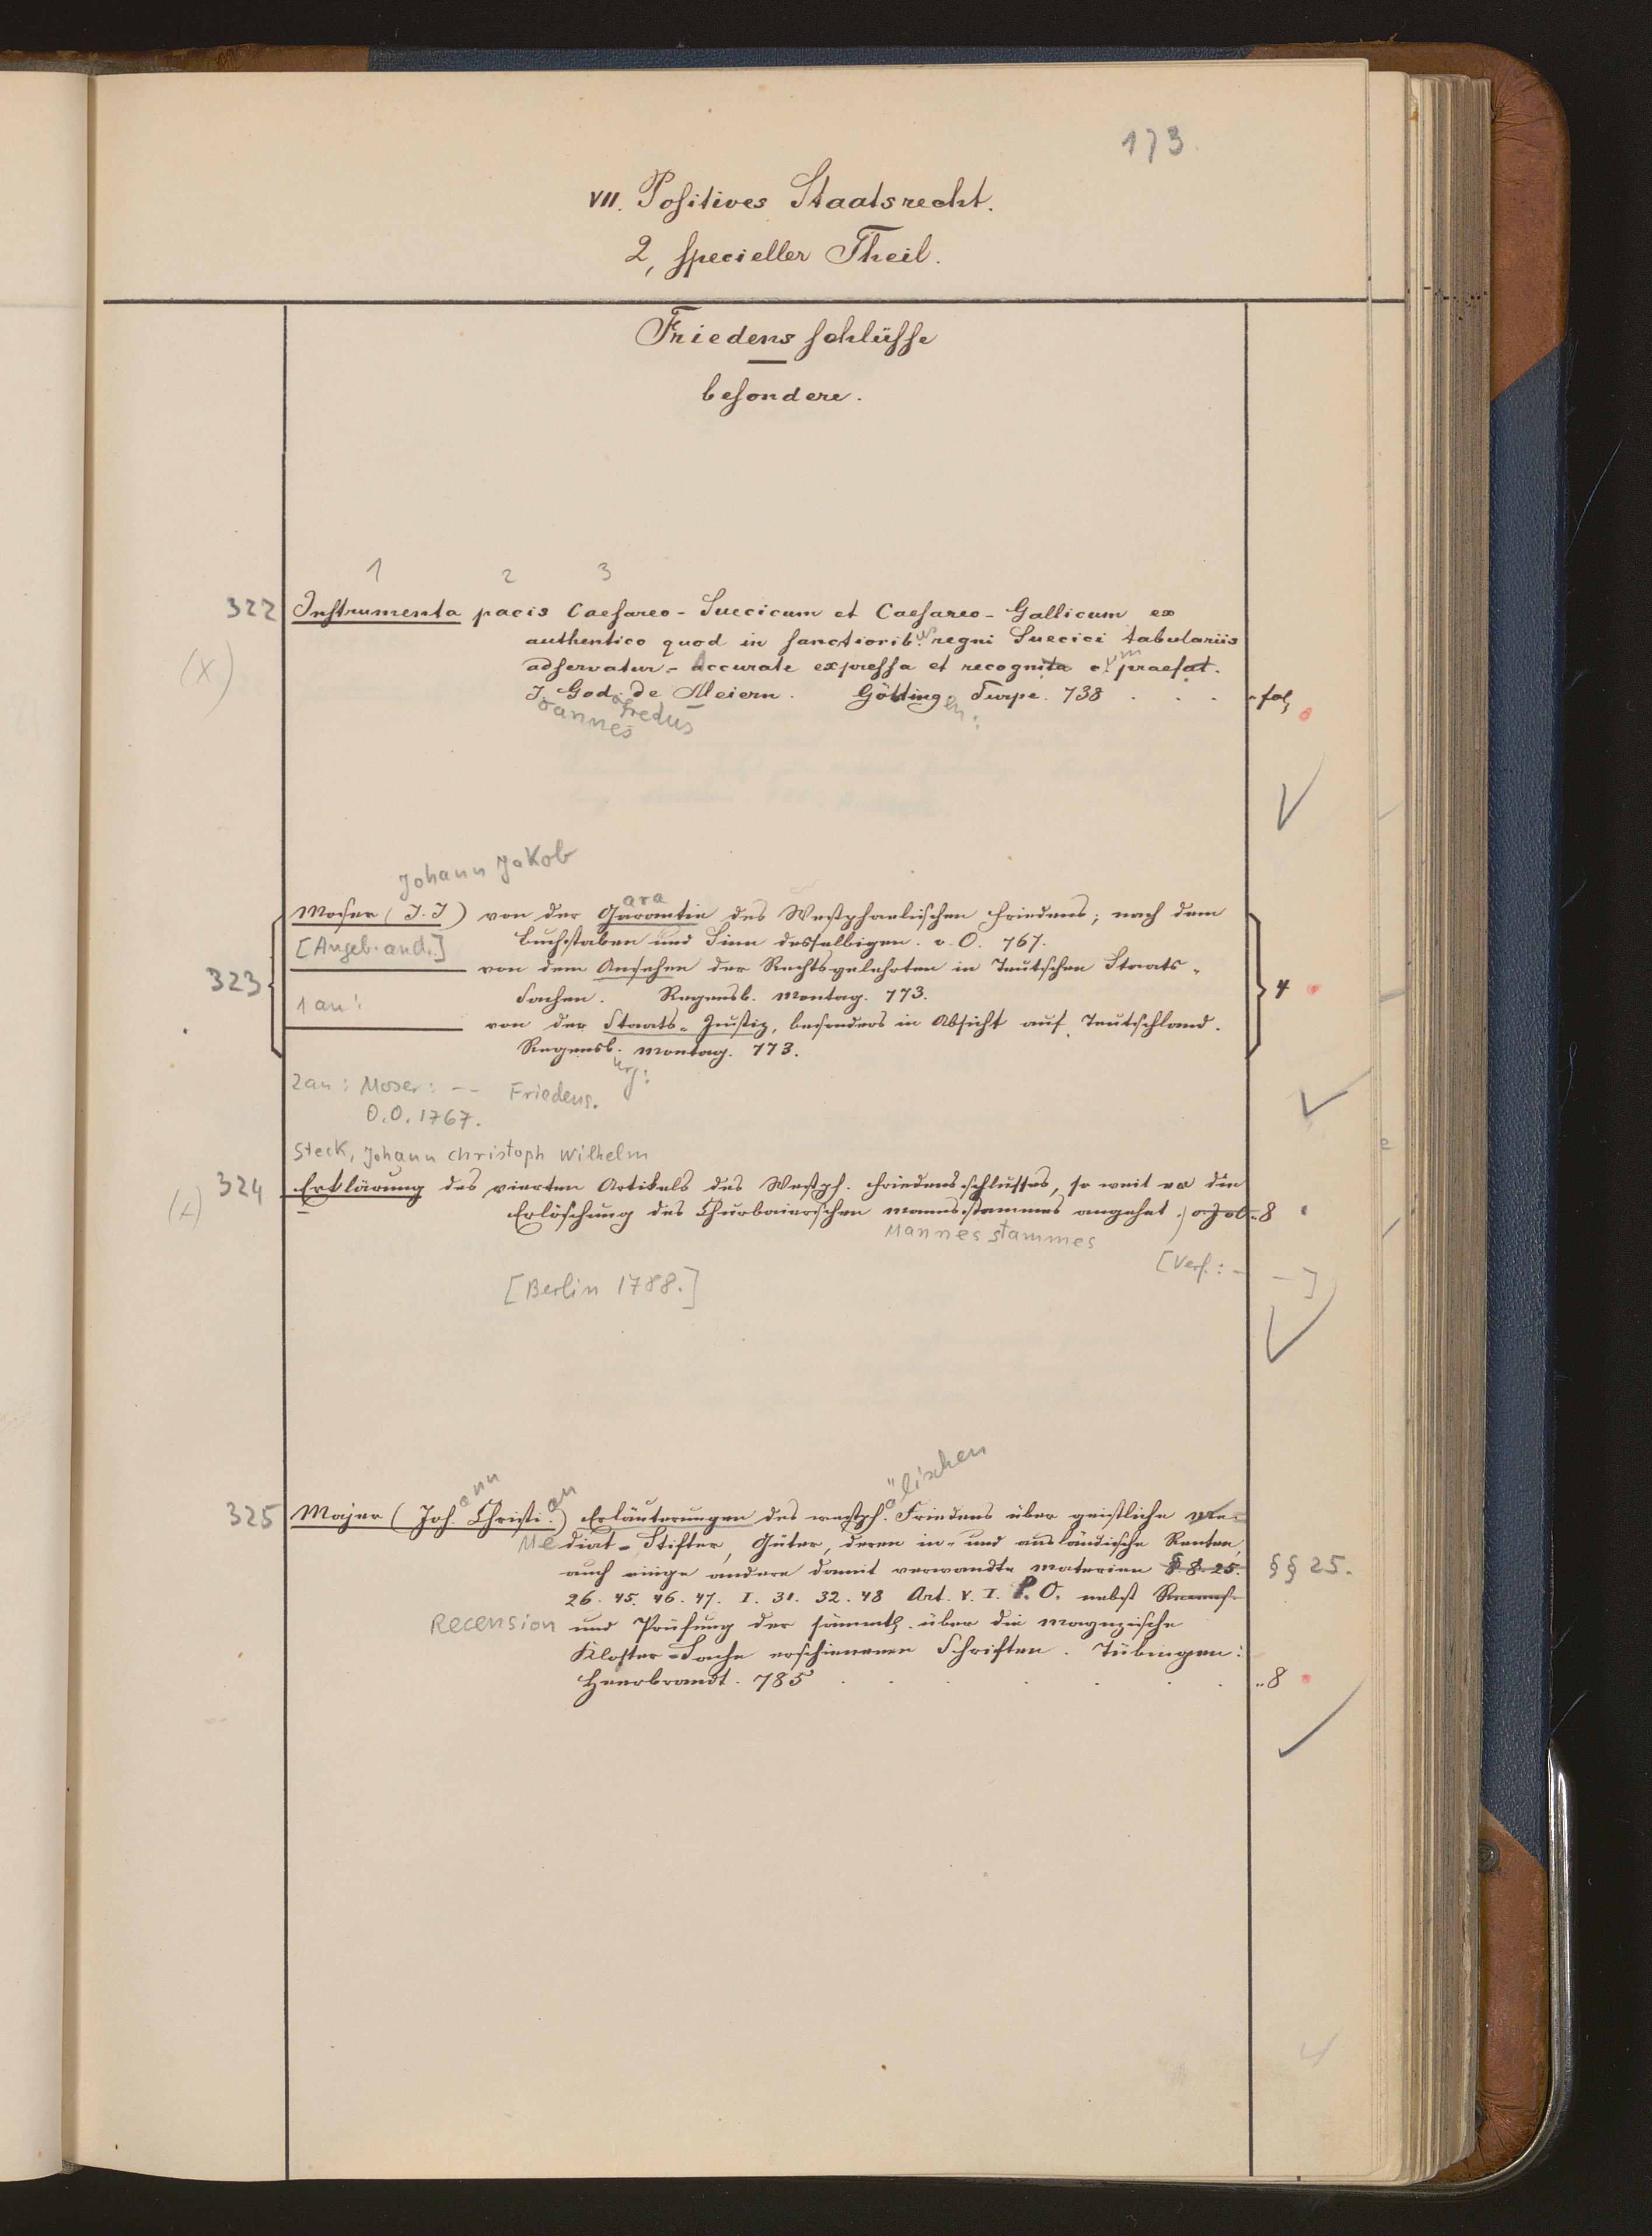 173.
VII. Positives Staatsrecht.
2, specieller Theil.
Friedensschlüsse
besondere.
1 2 3
322 Instrumenta pacis Caesareo-Suecicum et Caesareo-Gallicum ex
authentico quod in sanctiorib. regni Suecici tabulariis
(x) adservatur - accurate expressa et recognita c. praefat.
J. God. de Meiern. Götting. Turpe. 738 . . . "fol,
oannes ofredus en:
Johann Jakob
ara
Moser (J. J) von der Garantie des Westphaelischen Friedens; nach dem
[Angeb. and.] Buchstaben und Sinn desselbigen. o. O. 767.
323 von dem Ansehen der Rechtsgelehrten in Teutschen Staats- 4
1 an: Sachen. Regensb. Montag. 773.
von der Staats-Justiz, besonders in Absicht auf Teutschland.
Regensb. Montag. 773.
urg:
2an: Moser: -- Friedens.
O.O. 1767.
Steck, Johann Christoph Wilhelm
324 Erklärung des vierten Artikels des Westph. Friedensschlusses, so weit er die
(x) Erlöschung des Churbaierschen Mannsstammes angehet. "8
Mannesstammes
[Verf.: - -]
[Berlin 1788.]
ann an älischen
325 Majer (Joh. Christi.) Erläuterungen des westph. Friedens über geistliche Me-
Me diat-Stifter, Güter, deren in- und ausländische Renten,
auch einige andere damit verwandte Materien §. §. 25. §§ 25.
26. 45. 46. 47. I. 31. 32. 48 Art. V. I. P. O. nebst Recens-
Recension und Prüfung der sämmtl. über die Maynzische
Kloster-Sache erschienenen Schriften. Tübingen:
Heerbrandt. 785 . . . . . . "8